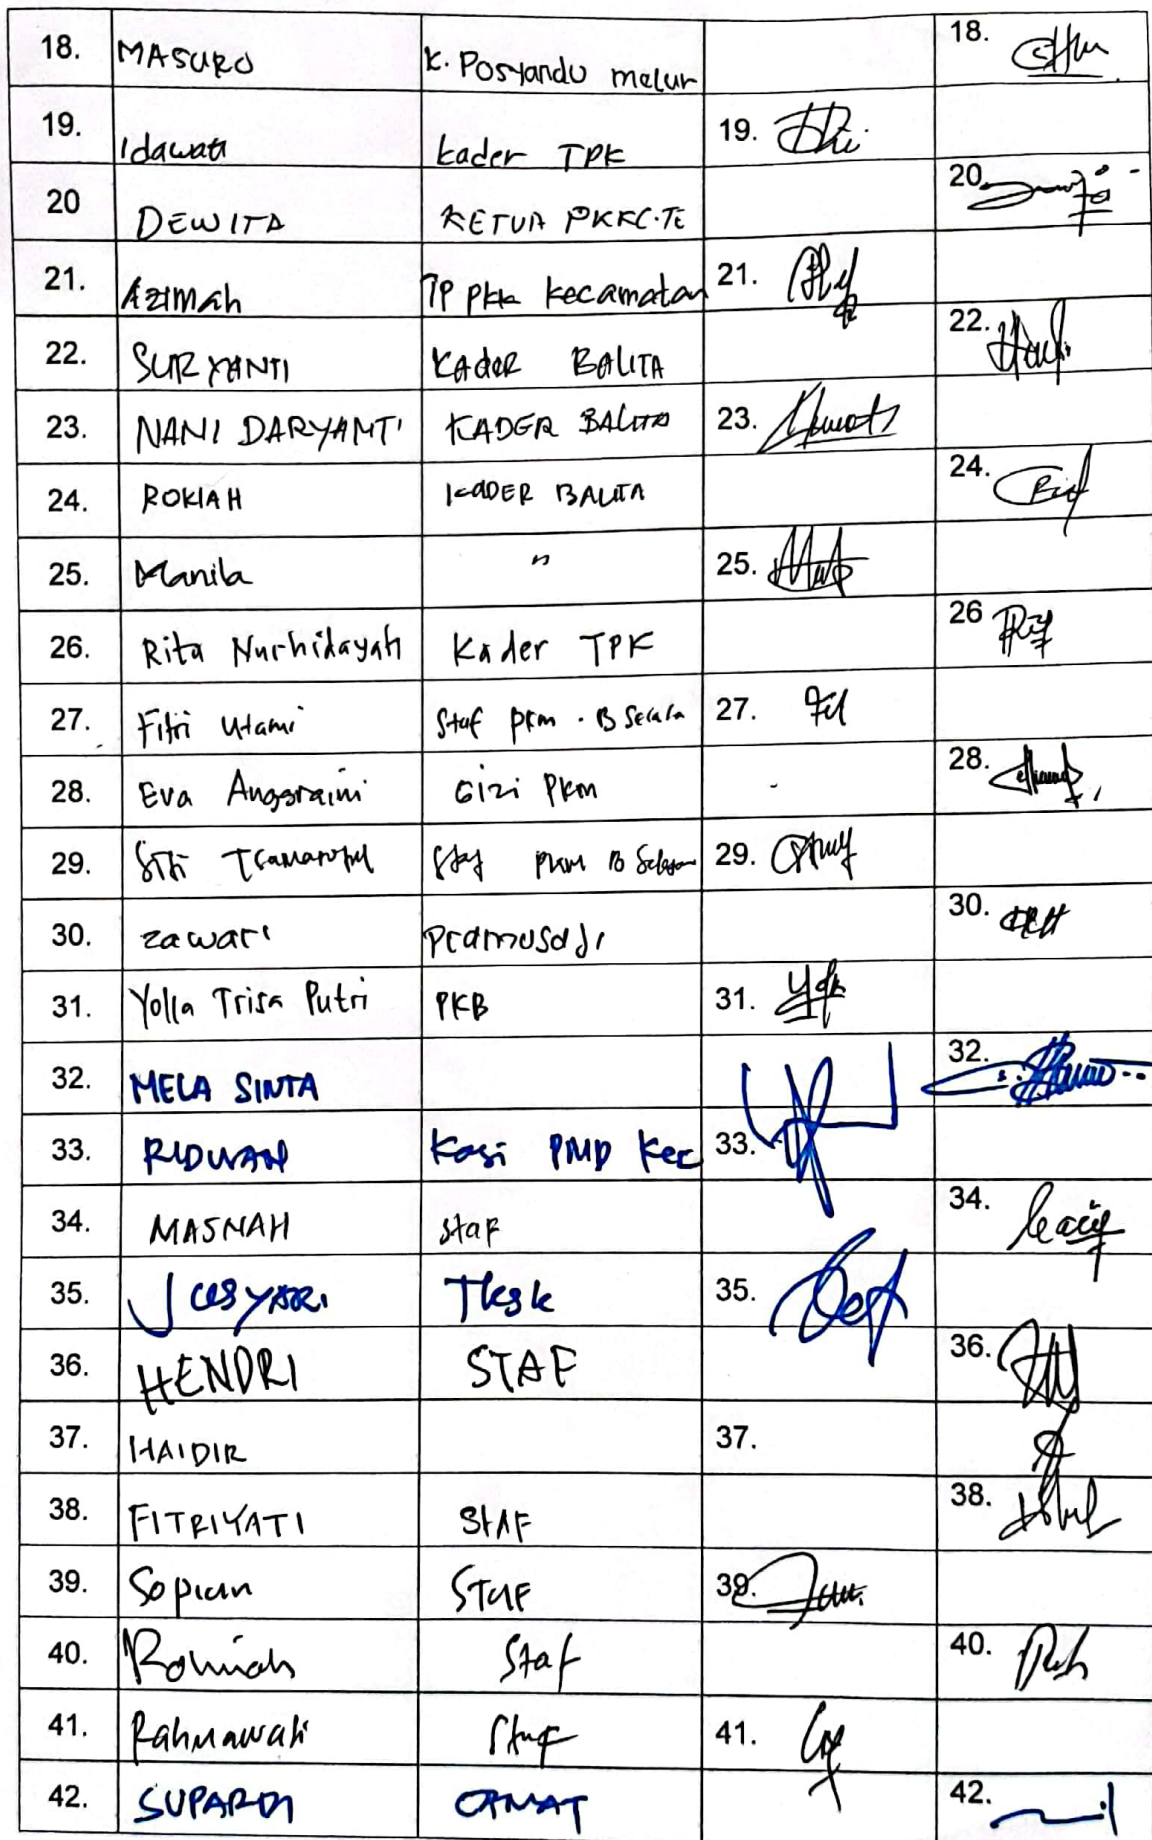 18. MASURO K. Posyandu melur 18.
19. Idawati kader TPK 19.
20 DEWITA KETUA PKKC.TE 20
21. Azimah TP PKK Kecamatan 21.
22. SURYANTI KADER BALITA 22.
23. NANI DARYANTI KADER BALITA 23.
24. ROKIAH KADER BALITA 24.
25. Manila " 25.
26. Rita Nurhidayah Kader TPK 26
27. Fitri Utami Staf pkm . B Selala 27.
28. Eva Anggraini Gizi PKm 28.
29. Siti Staf PKM B 29.
30. zawari Pramusaji 30.
31. Yolla Trisa Putri PKB 31.
32. MELA SINTA 32.
33. RIDWAN Kasi PMD Kec 33.
34. MASNAH staf 34.
35. JUSYARI Tksk 35.
36. HENDRI STAF 36.
37. HAIDIR 37.
38. FITRIYATI STAF 38.
39. Sopian STAF 39.
40. Romiah Staf 40.
41. Rahmawati Staf 41.
42. SUPARDI CAMAT 42.